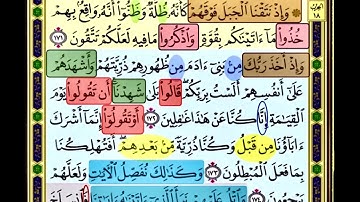 وَإِذْ نَتَقْنَا ٱلْجَبَلَ فَوْقَهُمْ كَأَنَّهُۥ ظُلَّةٌ وَظَنُّوٓا۟ أَنَّهُۥ وَاقِعٌۢ بِهِمْ
خُذُوا۟ مَآ ءَاتَيْنَٰكُم بِقُوَّةٍ وَٱذْكُرُوا۟ مَا فِيهِ لَعَلَّكُمْ تَتَّقُونَ ١٧١
وَإِذْ أَخَذَ رَبُّكَ مِنۢ بَنِىٓ ءَادَمَ مِن ظُهُورِهِمْ ذُرِّيَّتَهُمْ وَأَشْهَدَهُمْ
عَلَىٰٓ أَنفُسِهِمْ أَلَسْتُ بِرَبِّكُمْ قَالُوا۟ بَلَىٰ شَهِدْنَآ أَن تَقُولُوا۟ يَوْمَ
ٱلْقِيَٰمَةِ إِنَّا كُنَّا عَنْ هَٰذَا غَٰفِلِينَ ١٧٢ أَوْ تَقُولُوٓا۟ إِنَّمَآ أَشْرَكَ
ءَابَآؤُنَا مِن قَبْلُ وَكُنَّا ذُرِّيَّةً مِّنۢ بَعْدِهِمْ أَفَتُهْلِكُنَا
بِمَا فَعَلَ ٱلْمُبْطِلُونَ ١٧٣ وَكَذَٰلِكَ نُفَصِّلُ ٱلْءَايَٰتِ وَلَعَلَّهُمْ
يَرْجِعُونَ ١٧٤ وَٱتْلُ عَلَيْهِمْ نَبَأَ ٱلَّذِىٓ ءَاتَيْنَٰهُ ءَايَٰتِنَا فَٱنسَلَخَ